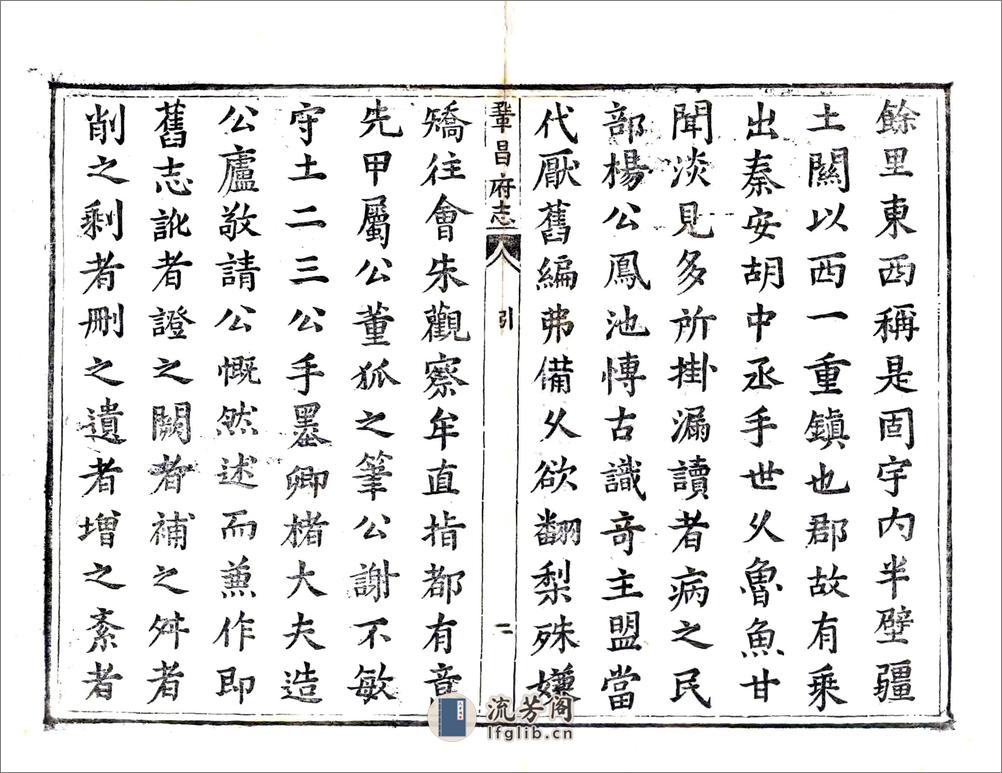 餘里東西稱是固宇内半壁疆
土關以西一重鎮也郡故有乘
出秦安胡中丞手世乆魯魚甘
聞淡見多所掛漏讀者病之民
部楊公鳳池愽古識奇主盟當
代厭舊編弗備乆欲翻梨殊嫌
鞏昌府志
引
二
矯徃會朱觀察牟直指都有意
先甲屬公董狐之筆公謝不敏
守土二三公手墨卿楮大夫造
公廬敬請公慨然述而兼作即
舊志訛者證之闕者補之舛者
削之剩者刪之遺者增之紊者
流芳阁
lfglib.cn